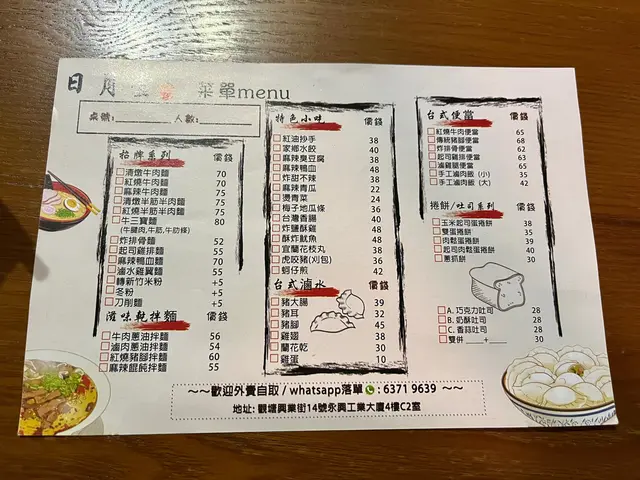 日月 菜單menu
桌號: 人數:
招牌系列 價錢
清燉牛肉麵 70
紅燒牛肉麵 70
麻辣牛肉麵 70
清燉半筋半肉麵 75
紅燒半筋半肉麵 75
牛三寶麵 80
(牛腱肉,牛筋,牛肋條)
炸排骨麵 52
起司雞排麵 55
麻辣鴨血麵 70
滷水雞翼麵 55
轉新竹米粉 +5
冬粉 +5
刀削麵 +5
滋味乾拌麵
牛肉蔥油拌麵 56
滷肉蔥油拌麵 54
紅燒豬腳拌麵 60
麻辣餛飩拌麵 55
特色小吃 價錢
紅油抄手 38
家鄉水餃 40
麻辣臭豆腐 38
麻辣鴨血 48
炸甜不辣 38
麻辣青瓜 22
燙青菜 24
梅子地瓜條 36
台灣香腸 40
炸鹽酥雞 48
酥炸魷魚 48
宜蘭花枝丸 38
虎咬豬(刈包) 36
蚵仔煎 42
台式滷水
豬大腸 39
豬耳 32
豬腳 45
雞翅 38
蘭花乾 30
雞蛋 10
台式便當 價錢
紅燒牛肉便當 65
傳統豬腳便當 68
炸排骨便當 62
起司雞排便當 63
滷雞腿便當 65
手工滷肉飯 (小) 35
手工滷肉飯 (大) 42
捲餅/吐司系列 價錢
玉米起司蛋捲餅 38
雙蛋捲餅 35
肉鬆蛋捲餅 39
起司肉鬆蛋捲餅 40
蔥抓餅 30
A. 巧克力吐司 28
B. 奶酥吐司 28
C. 香蒜吐司 28
雙併 ___+___ 30
~~歡迎外賣自取 / whatsapp落單 : 6371 9639 ~~
地址: 觀塘興業街14號永興工業大廈4樓C2室